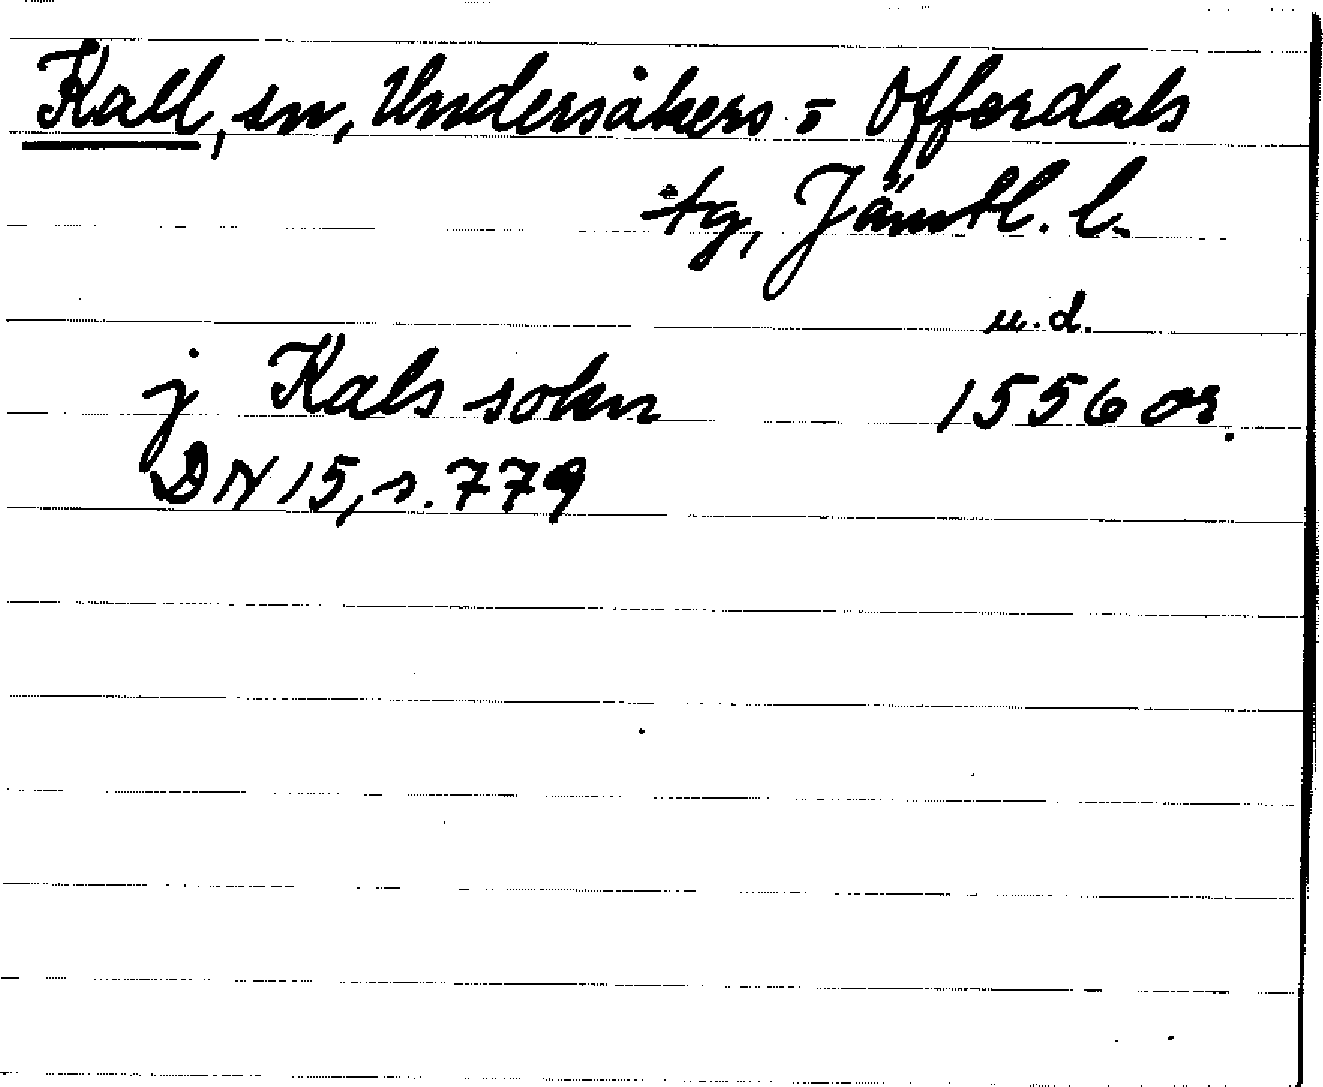 Kall, sn, Undersåkers- o Offerdals
tg, Jämtl. l.
u.d.
j Kals sokn 1556 or.
DN 15, s. 779